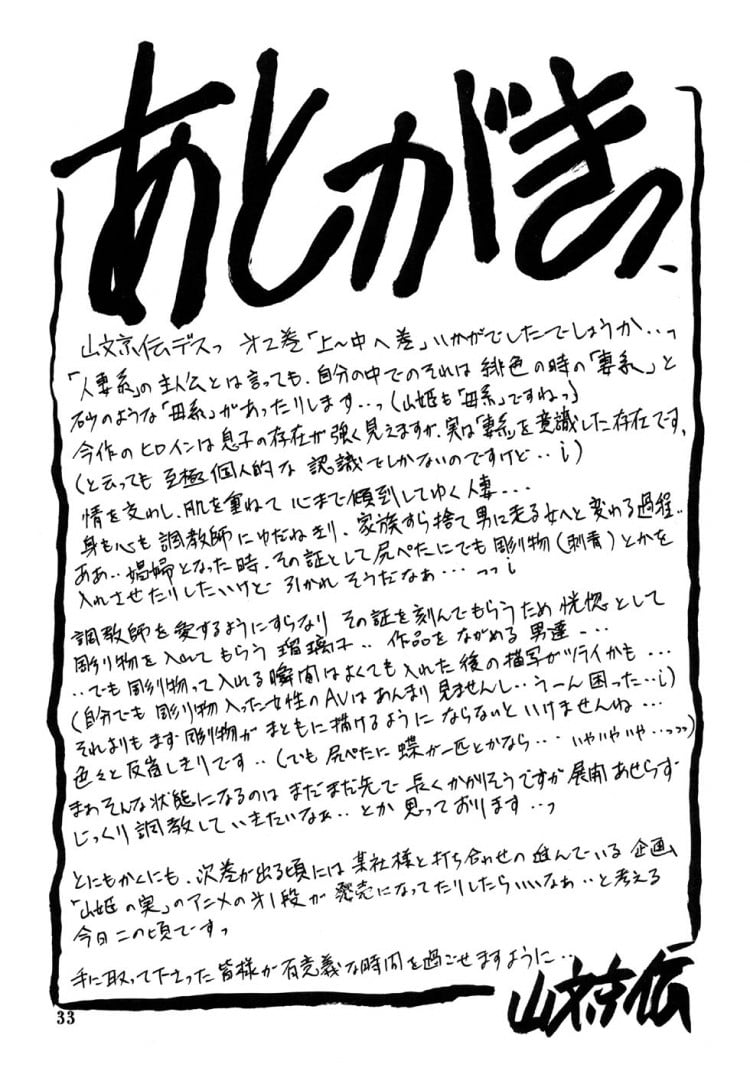 あとがきっ
山文京伝デスっ 才2巻「上〜中へ巻」いかがでしたでしょうか‥っ
「人妻系」の主人公とは言っても、自分の中でのそれは緋色の時の「妻系」と
砂のような「母系」があったりします‥っ(山姫も「母系」ですねっ)
今作のヒロインは息子の存在が強く見えますが、実は「妻系」を意識した存在です、
(と云っても至極個人的な 認識でしかないのですけど‥i)
情を交わし、肌を重ねて 心まで傾倒してゆく人妻・・・
身も心も 調教師にゆだねきり、家族すら捨て男に走る女へと変わる過程‥
ああ‥娼婦となった時、その証として尻ぺたにでも彫物(刺青)とかを
入れさせたりしたいけど 引かれそうだなぁ・・・っっi
調教師を愛するようにすらなり その証を刻んでもらうため恍惚として
彫り物を入れてもらう 瑠璃子‥ 作品を ながめる男達・・・
‥でも彫り物って入れる瞬間はよくても入れた後の描写がツライかも・・・
(自分でも 彫り物入った女性のAVはあんまり見ませんし‥うーん困った‥i)
それよりもまず彫り物が まともに描けるように ならないといけませんね・・・
色々と反省しきりです‥(でも尻ぺたに 蝶が一匹とかなら・・・ いやいやいや‥っっっ)
まぁそんな状態になるのは まだまだ先で 長くかかりそうですが展開あせらず
じっくり調教していきたいなぁ‥とか 思っております‥っ
とにもかくにも、次巻が出る頃には某社様と打ち合わせの進んでいる 企画
「山姫の実」のアニメの才1段が 発売になってたりしたらいいなぁ‥と考える
今日この頃ですっ
手に取って下さった 皆様が 有意義な時間を過ごせますように‥
山文京伝
33